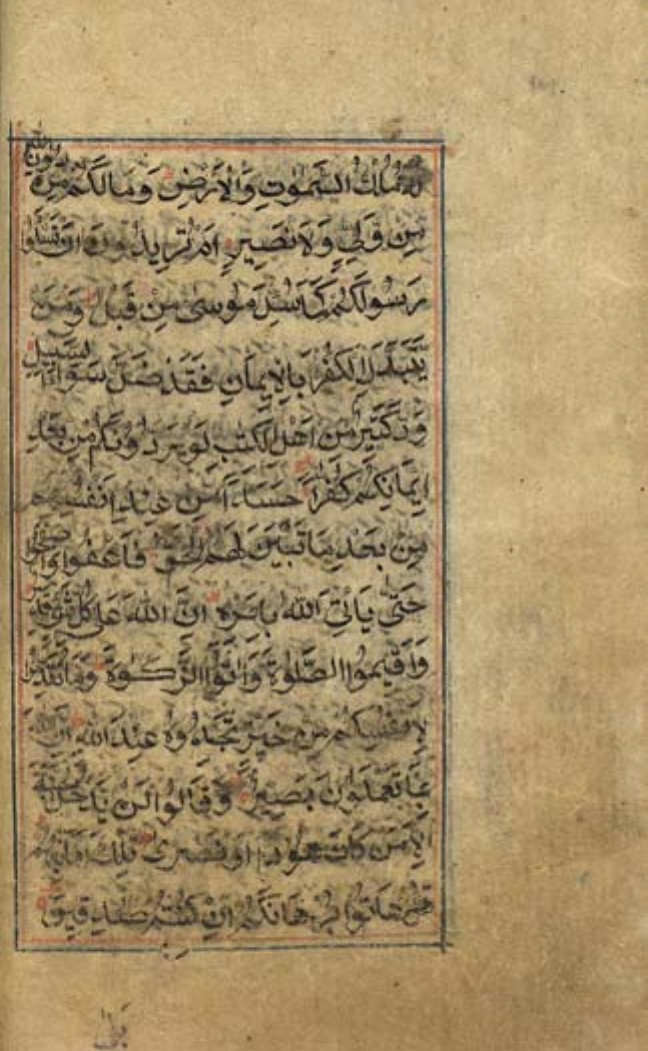 لَهُ مُلْكُ السَّمٰوٰتِ وَالْاَرْضِ وَمَا لَكُمْ مِنْ دُوْنِ اللّٰهِ
مِنْ وَّلِيٍّ وَّلَا نَصِيْرٍ اَمْ تُرِيْدُوْنَ اَنْ تَسْـَٔلُوْا
رَسُوْلَكُمْ كَمَا سُئِلَ مُوْسٰى مِنْ قَبْلُ وَمَنْ
يَّتَبَدَّلِ الْكُفْرَ بِالْاِيْمَانِ فَقَدْ ضَلَّ سَوَآءَ السَّبِيْلِ
وَدَّ كَثِيْرٌ مِّنْ اَهْلِ الْكِتٰبِ لَوْ يَرُدُّوْنَكُمْ مِّنْ بَعْدِ
اِيْمَانِكُمْ كُفَّارًا حَسَدًا مِّنْ عِنْدِ اَنْفُسِهِمْ
مِنْ بَعْدِ مَا تَبَيَّنَ لَهُمُ الْحَقُّ فَاعْفُوْا وَاصْفَحُوْا
حَتّٰى يَاْتِيَ اللّٰهُ بِاَمْرِهٖ اِنَّ اللّٰهَ عَلٰى كُلِّ شَيْءٍ قَدِيْرٌ
وَاَقِيْمُوا الصَّلٰوةَ وَاٰتُوا الزَّكٰوةَ وَمَا تُقَدِّمُوْا
لِاَنْفُسِكُمْ مِنْ خَيْرٍ تَجِدُوْهُ عِنْدَ اللّٰهِ اِنَّ اللّٰهَ
بِمَا تَعْمَلُوْنَ بَصِيْرٌ وَقَالُوْا لَنْ يَّدْخُلَ الْجَنَّةَ
اِلَّا مَنْ كَانَ هُوْدًا اَوْ نَصٰرٰى تِلْكَ اَمَانِيُّهُمْ
قُلْ هَاتُوْا بُرْهَانَكُمْ اِنْ كُنْتُمْ صٰدِقِيْنَ
بَلٰى